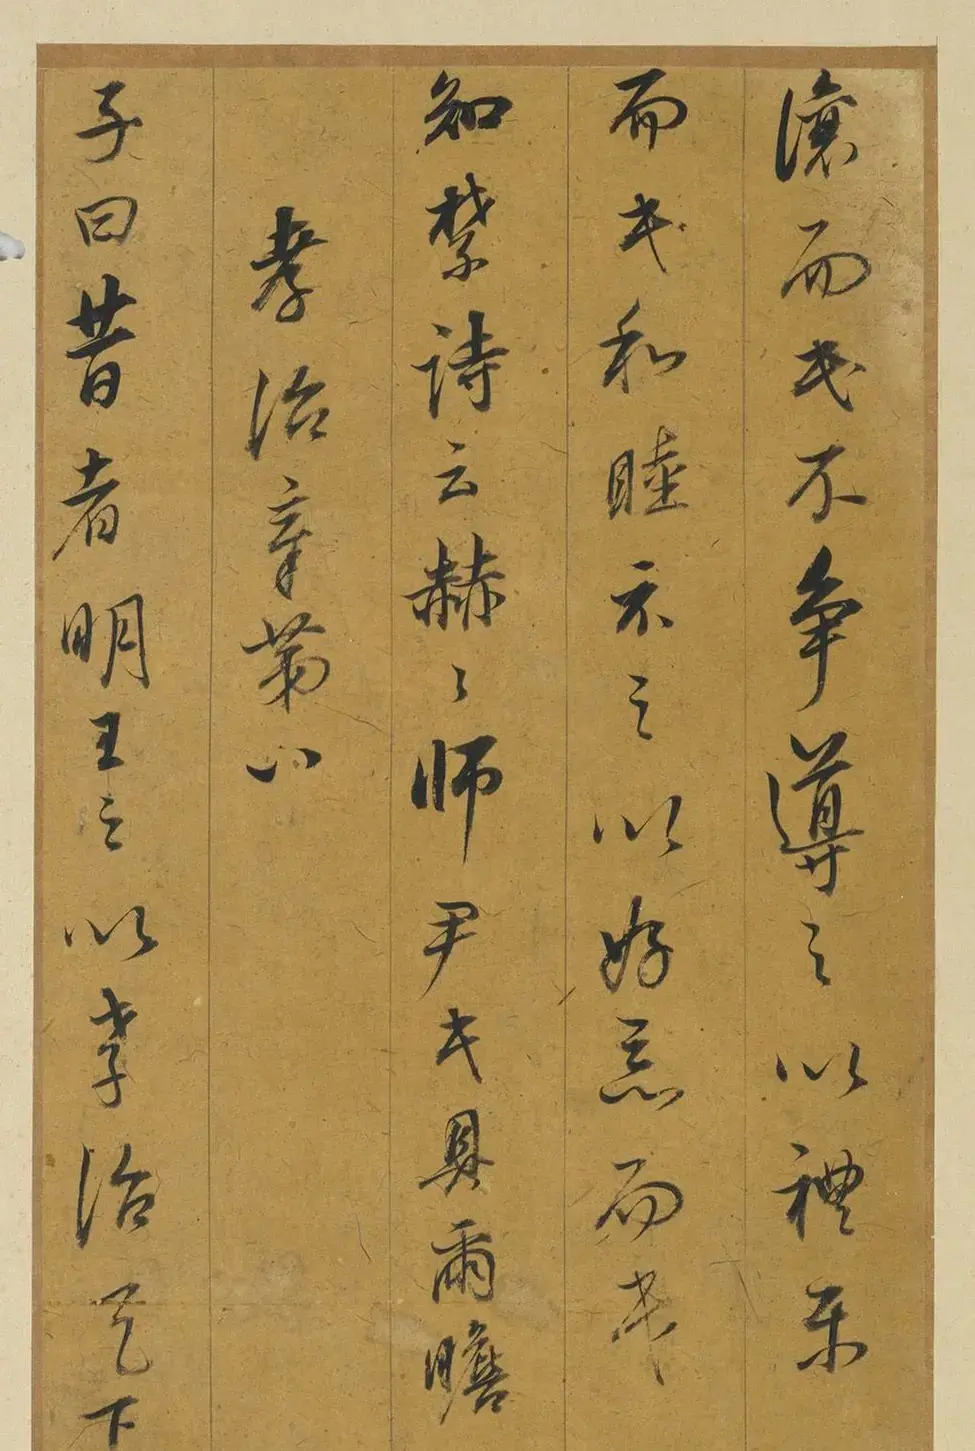 讓而民不爭導之以禮樂
而民和睦示之以好惡而民
知禁詩云赫〻師尹民具爾瞻
孝治章第八
子曰昔者明王之以孝治天下